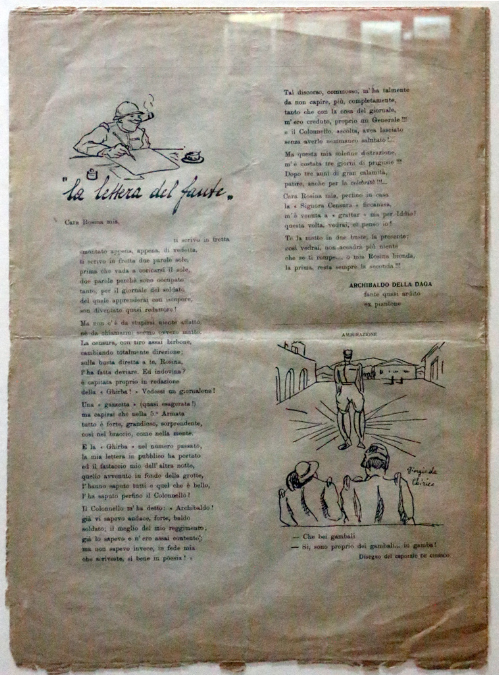 "la lettera del fante"
Cara Rosina mia,
ti scrivo in fretta
ti scrivo in fretta due parole sole,
prima che vada a
due parole perchè sono occupato,
tanto, per il giornale del soldato,
del quale apprenderai con
son diventato quasi redattore!
Ma non c'è da stupirsi
La censura, con tiro assai birbone,
cambiando totalmente direzione
sulla busta diretta a te, Rosina,
l'ha fatta deviare. Ed indovina?
è capitata proprio in redazione
della « Ghirba! » Vedessi un giornalone!
Una « gazzetta » (quasi
ma capirai che nella 5.ª Armata
tutto è forte, grandioso, sorprendente,
così nel braccio, come nella mente.
E la « Ghirba » nel numero passato,
la mia lettera in pubblico ha portato
ed il fattaccio mio dell'altra notte,
quello avvenuto in fondo della grotte,
l'hanno saputo tutti e quel che è bello,
l'ha saputo perfino il Colonnello!
Il Colonnello m'ha detto: « Archibaldo!
già vi sapevo audace, forte, baldo
soldato; il meglio del mio reggimento;
già lo sapevo e n'ero assai contento;
ma non sapevo invece, in fede mia
che scriveste, sì bene in poesia! »
Tal discorso, commosso, m'ha talmente
da non capire, più, completamente,
tanto che con la scusa del giornale,
m'ero creduto, proprio un Generale!!!
e il Colonnello, ascolta, avea lasciato
senza averlo nemmeno salutato!..
Ma questa mia solenne distrazione,
m'è costata tre giorni di prigione!!!
Dopo tre anni di gran calamità,
patire, anche per la celebrità!!!..
Cara Rosina mia, perfino in casa
la « Signora Censura »
m'è venuta a « grattar » ma per Iddio!
questa volta, vedrai, ci penso io!
Te la metto in due buste, la presente;
così vedrai, non accadrà più niente
che se si rompe... o mia Rosina bionda,
la prima, resta sempre la seconda!!
ARCHIBALDO DELLA DAGA
fante quasi ardito
ex piantone
AMMIRAZIONE
Giorgio de
Chirico
— Che bei gambali
— Sì, sono proprio dei gambali... in gamba!
Disegno del caporale DE CHIRICO